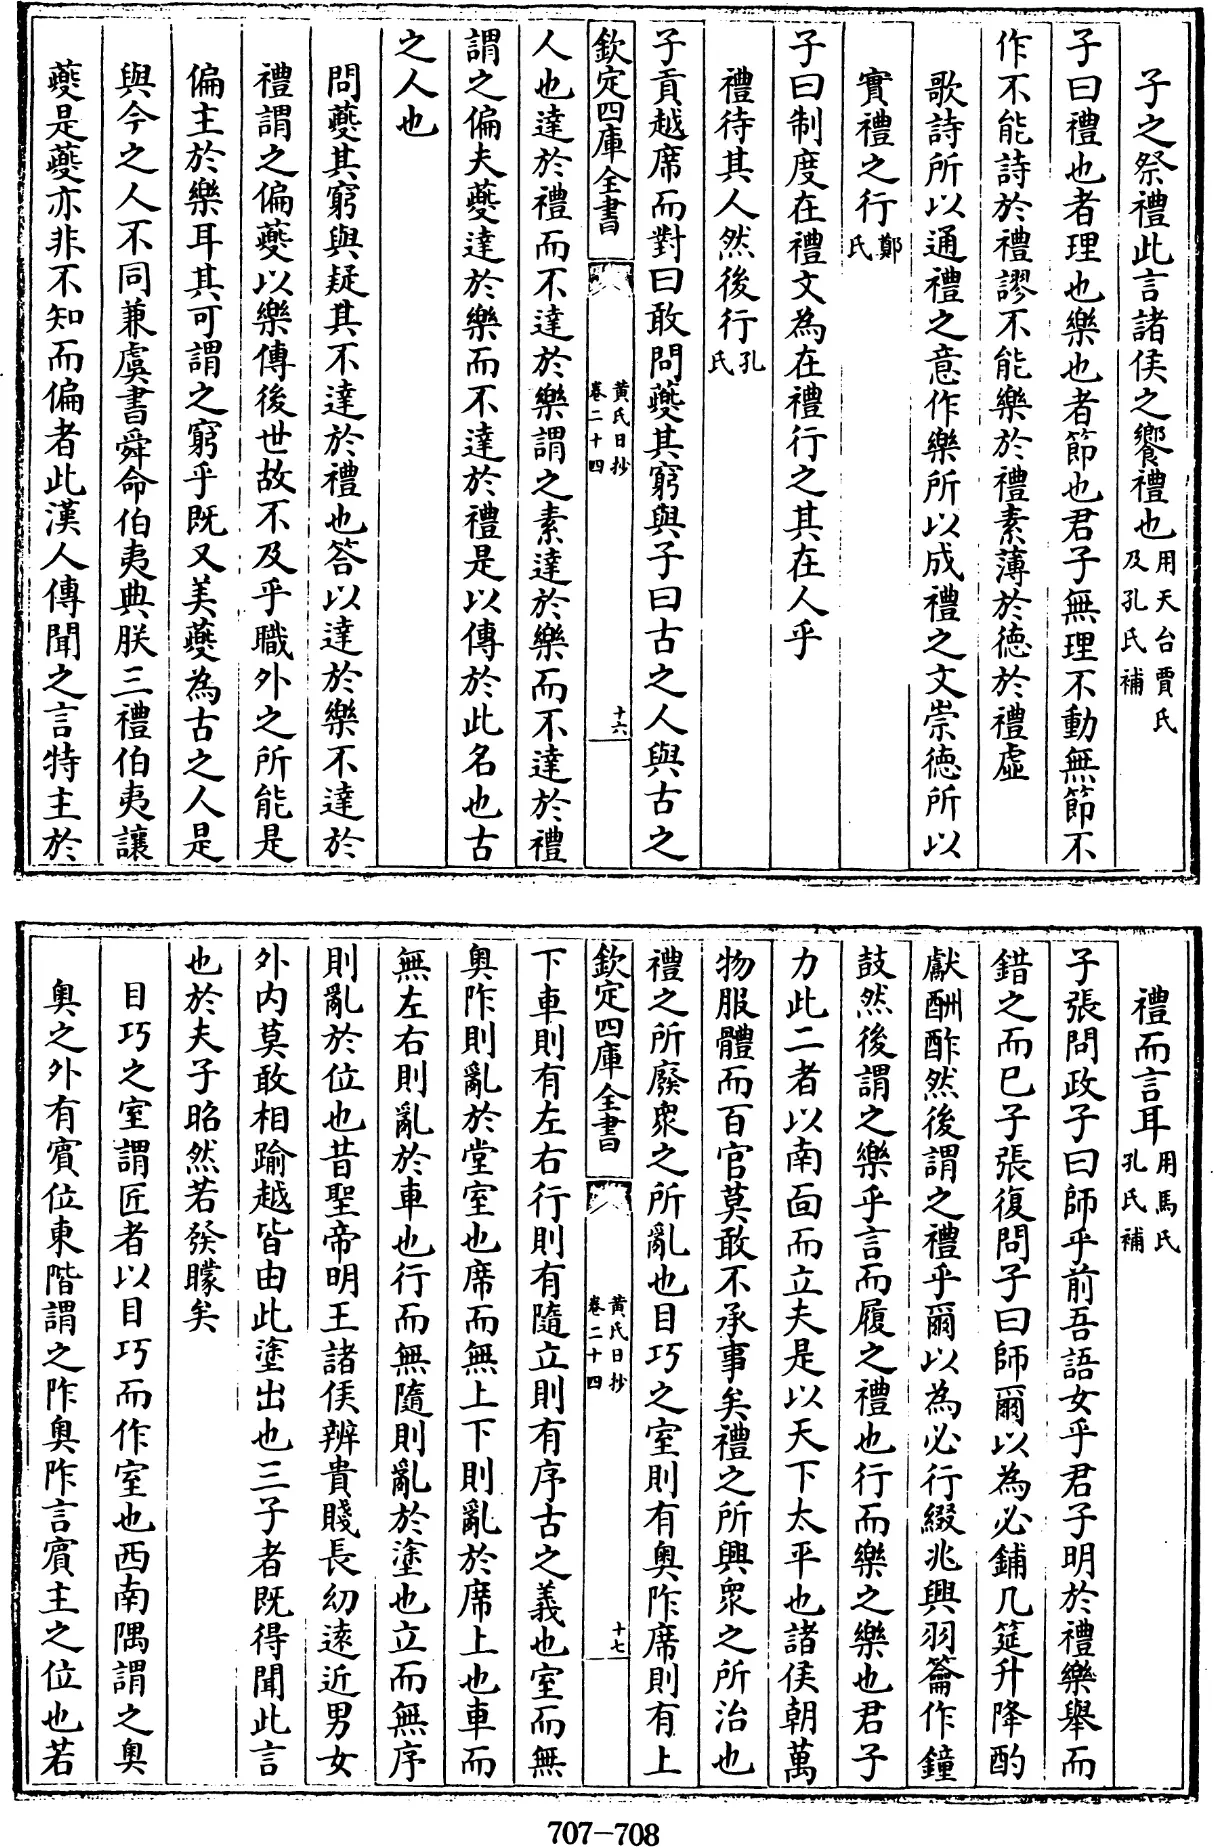 子之祭禮此言諸侯之饗禮也用天台賈氏及孔氏補
子曰禮也者理也樂也者節也君子無理不動無節不
作不能詩於禮謬不能樂於禮素薄於徳於禮虛
歌詩所以通禮之意作樂所以成禮之文崇徳所以
實禮之行鄭氏
子曰制度在禮文為在禮行之其在人乎
禮待其人然後行孔氏
子貢越席而對曰敢問夔其窮與子曰古之人與古之
欽定四庫全書 黄氏日抄 卷二十四 十六
人也達於禮而不達於樂謂之素達於樂而不達於禮
謂之偏夫夔達於樂而不達於禮是以傳於此名也古
之人也
問夔其窮與疑其不達於禮也答以達於樂不達於
禮謂之偏夔以樂傳後世故不及乎職外之所能是
偏主於樂耳其可謂之窮乎既又美夔為古之人是
與今之人不同兼虞書舜命伯夷典朕三禮伯夷讓
夔是夔亦非不知而偏者此漢人傳聞之言特主於
禮而言耳用馬氏孔氏補
子張問政子曰師乎前吾語女乎君子明於禮樂舉而
錯之而已子張復問子曰師爾以為必鋪几筵升降酌
獻酬酢然後謂之禮乎爾以為必行綴兆興羽籥作鐘
鼓然後謂之樂乎言而履之禮也行而樂之樂也君子
力此二者以南面而立夫是以天下太平也諸侯朝萬
物服體而百官莫敢不承事矣禮之所興衆之所治也
禮之所廢衆之所亂也目巧之室則有奥阼席則有上
欽定四庫全書 黄氏日抄 卷二十四 十七
下車則有左右行則有隨立則有序古之義也室而無
奥阼則亂於堂室也席而無上下則亂於席上也車而
無左右則亂於車也行而無隨則亂於塗也立而無序
則亂於位也昔聖帝明王諸侯辨貴賤長幼遠近男女
外内莫敢相踰越皆由此塗出也三子者既得聞此言
也於夫子昭然若發矇矣
目巧之室謂匠者以目巧而作室也西南隅謂之奥
奥之外有賓位東階謂之阼奥阼言賓主之位也若
707–708